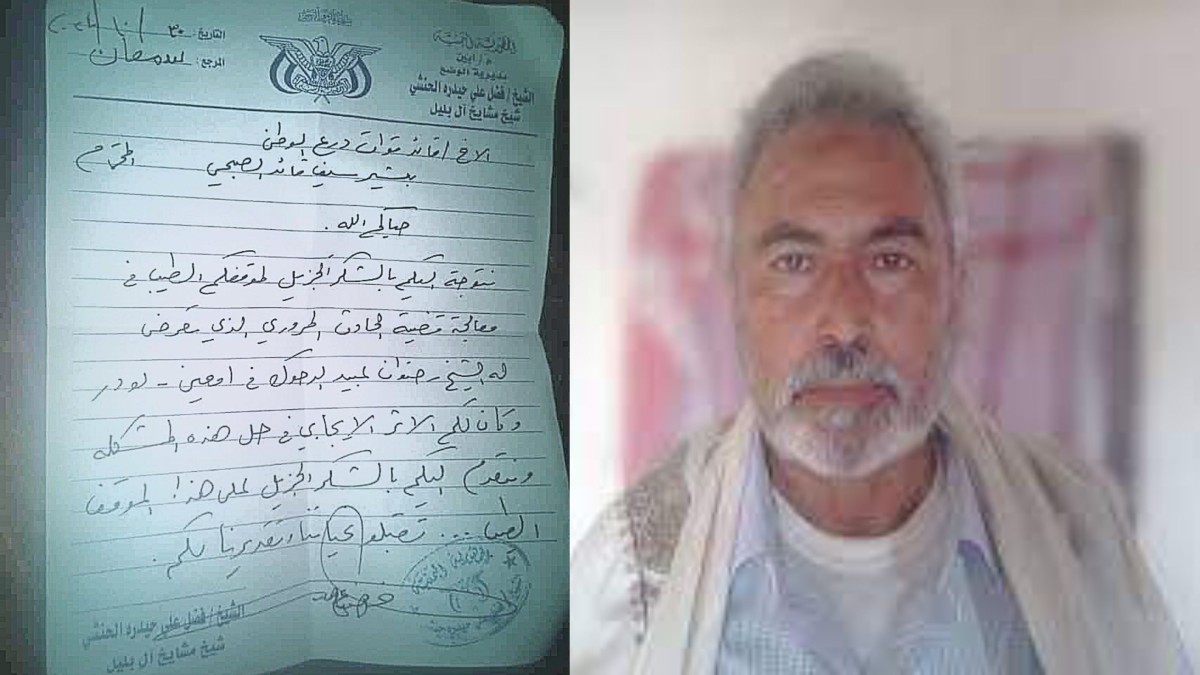 الجمهورية اليمنية
م / أبين
مديرية الوضع
الشيخ / فضل علي حيدره الحنشي
شيخ مشايخ آل بليل
التاريخ: ٣٠ / ١٠ /
المرجع:
الاخ / قائد قوات درع الوطن
بشير سيف قائد الصبحي المحترم
حياكم الله .
نتوجة اليكم بالشكر الجزيل لموقفكم الطيب في
معالجة قضية الحادث المروري الذي تعرض
له الشيخ رضوان عبيد الدحوك في امعين - لودر
وكان لكم الاثر الإيجابي في حل هذه المشكله
ونتقدم اليكم بالشكر الجزيل على هذا الموقف
الطيب ... تقبلو تحياتنا وتقديرنا لكم .
الشيخ / فضل علي حيدره الحنشي
شيخ مشايخ آل بليل